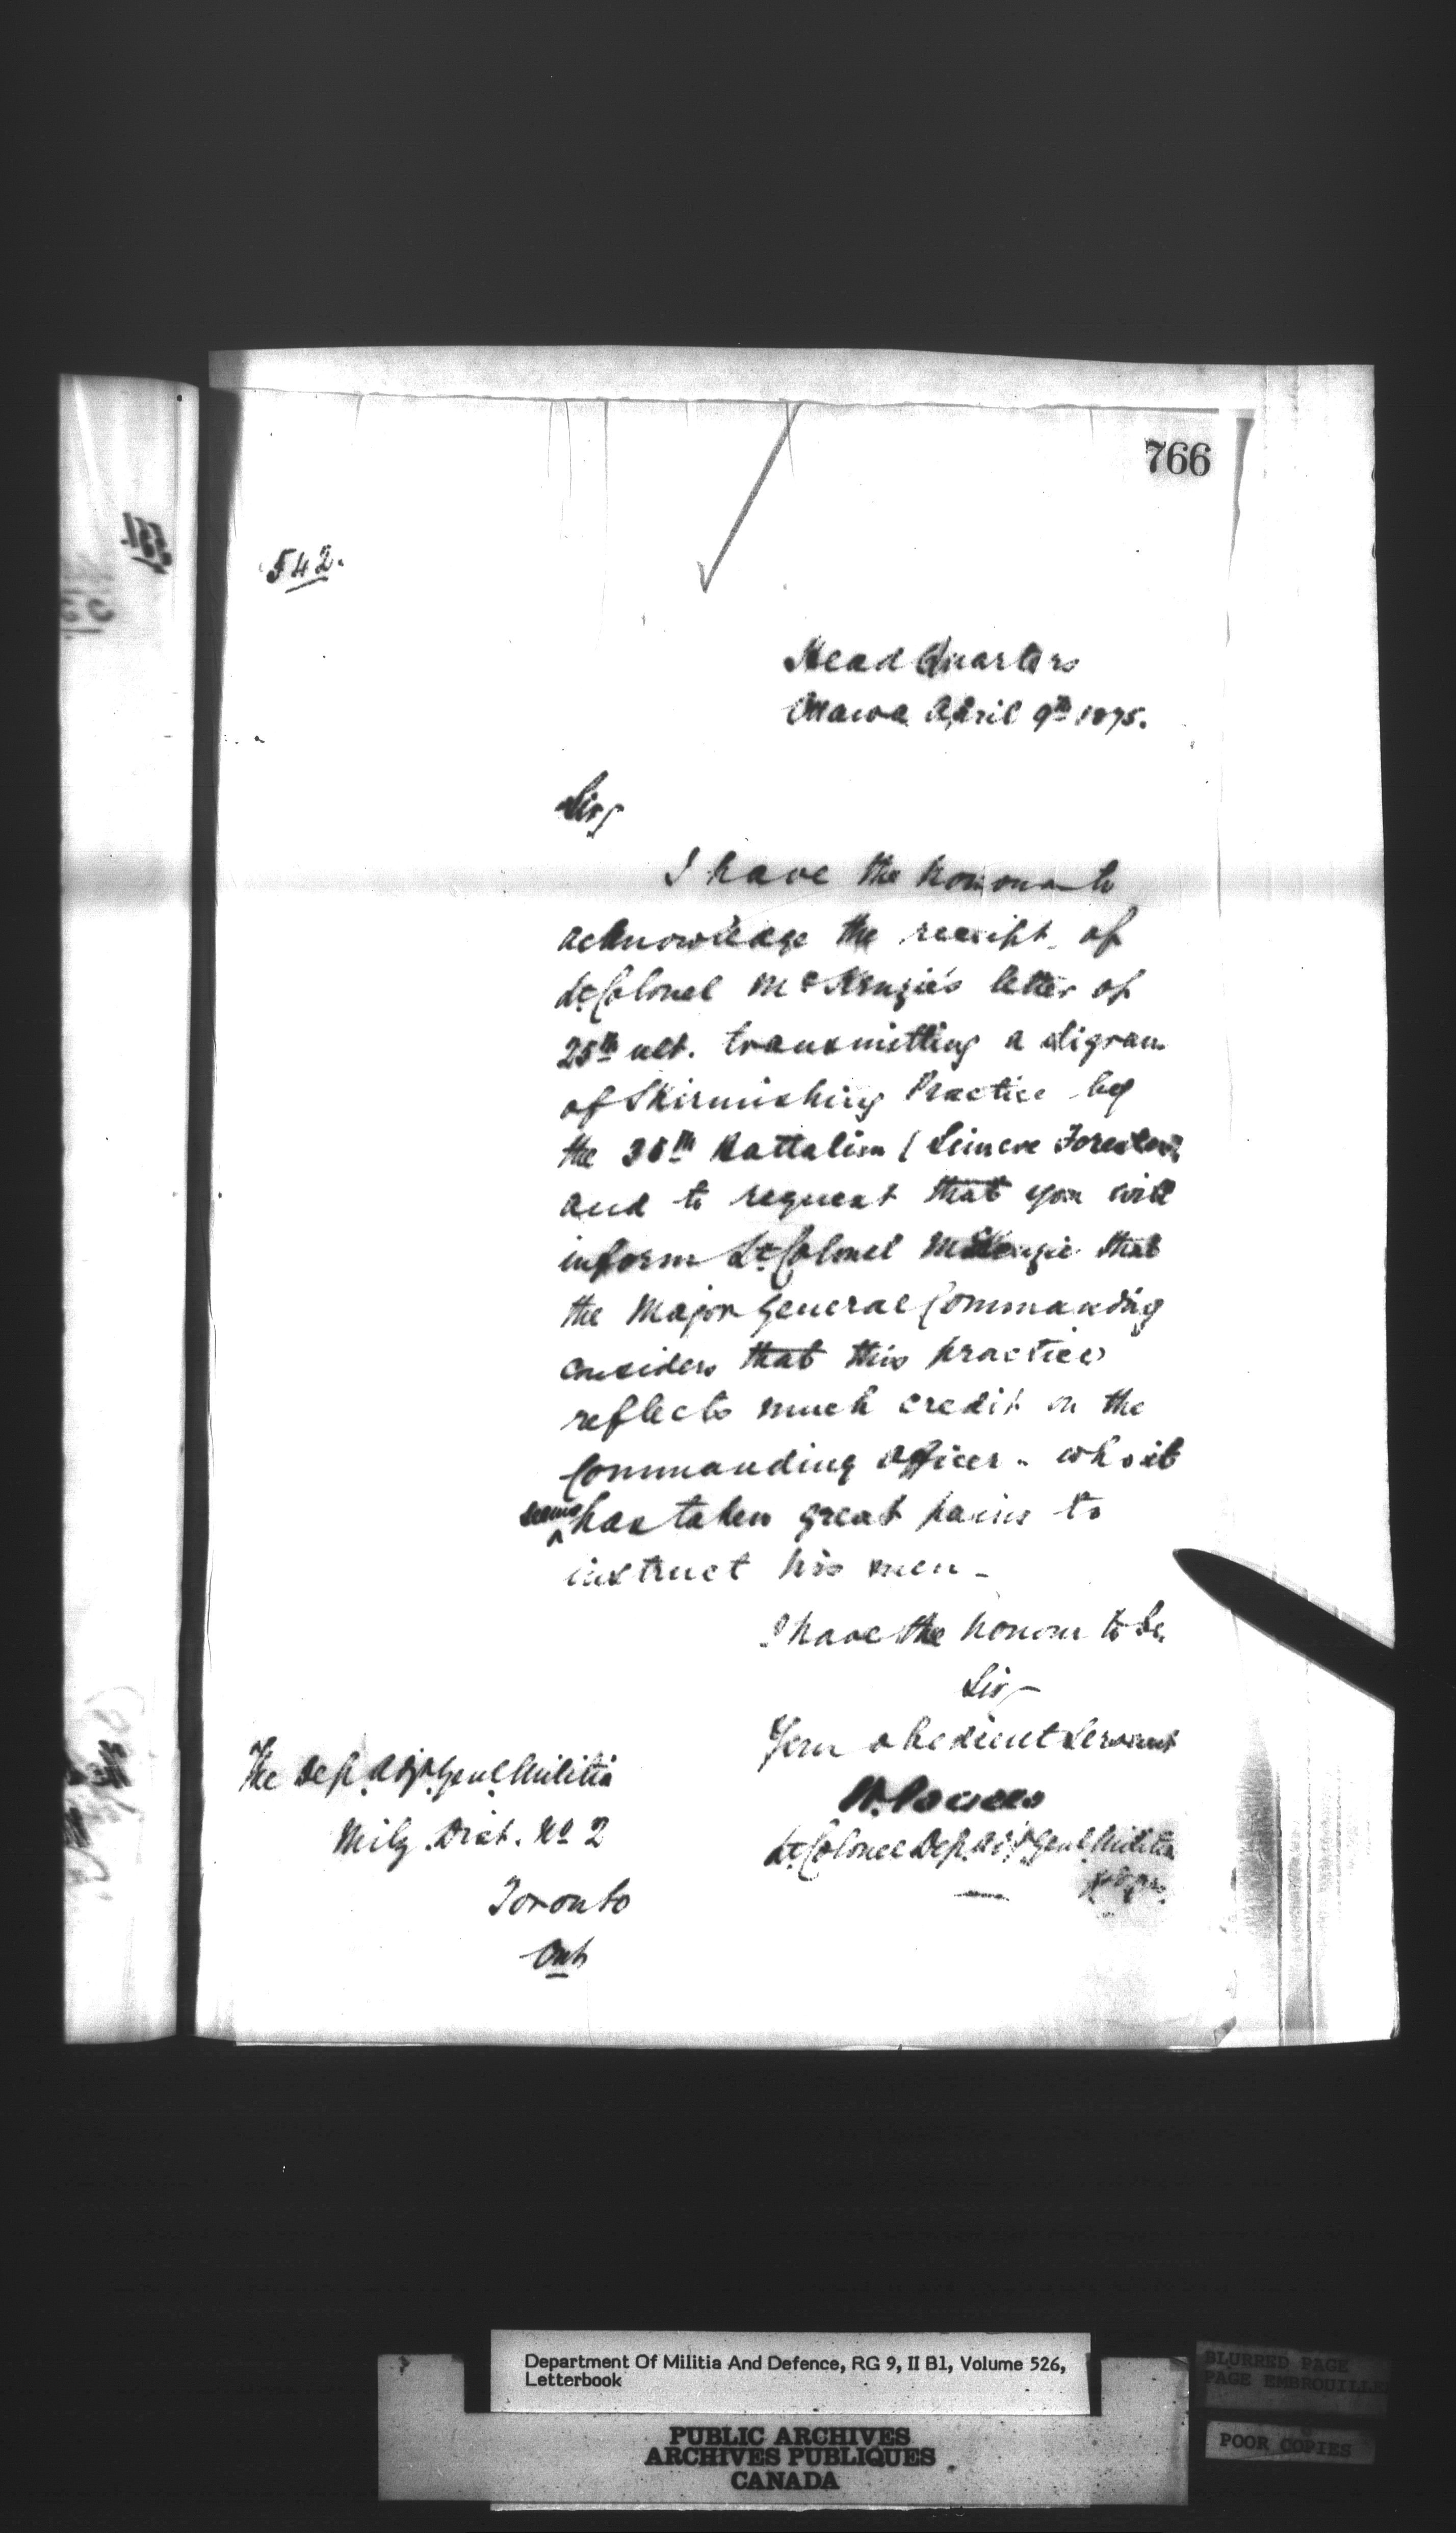 766
542.
Head Quarters
Ottawa April 9th 1875.
Sir,
I have the honour to
acknowledge the receipt of
Lt Colonel McKenzie's letter of
25th ult. transmitting a digram
of Skirmishing Practice by
the 35th Battalion (Simcoe Foresters)
and to request that you will
inform Lt Colonel McKenzie that
the Major General Commanding
considers that this practice
reflects much credit on the
Commanding Officer - who it
seems has taken great pains to
instruct his men -
I have the honour to be,
Sir,
Your obedient Servant
W. Powell
Lt Colonel Dep. Adjt Genl Militia
The Dep. Adjt Genl Militia
Mily. Dist. No 2
Toronto
Ont
Department Of Militia And Defence, RG 9, II B1, Volume 526,
Letterbook
PUBLIC ARCHIVES
ARCHIVES PUBLIQUES
CANADA
BLURRED PAGE
PAGE EMBROUILLEE
POOR COPIES